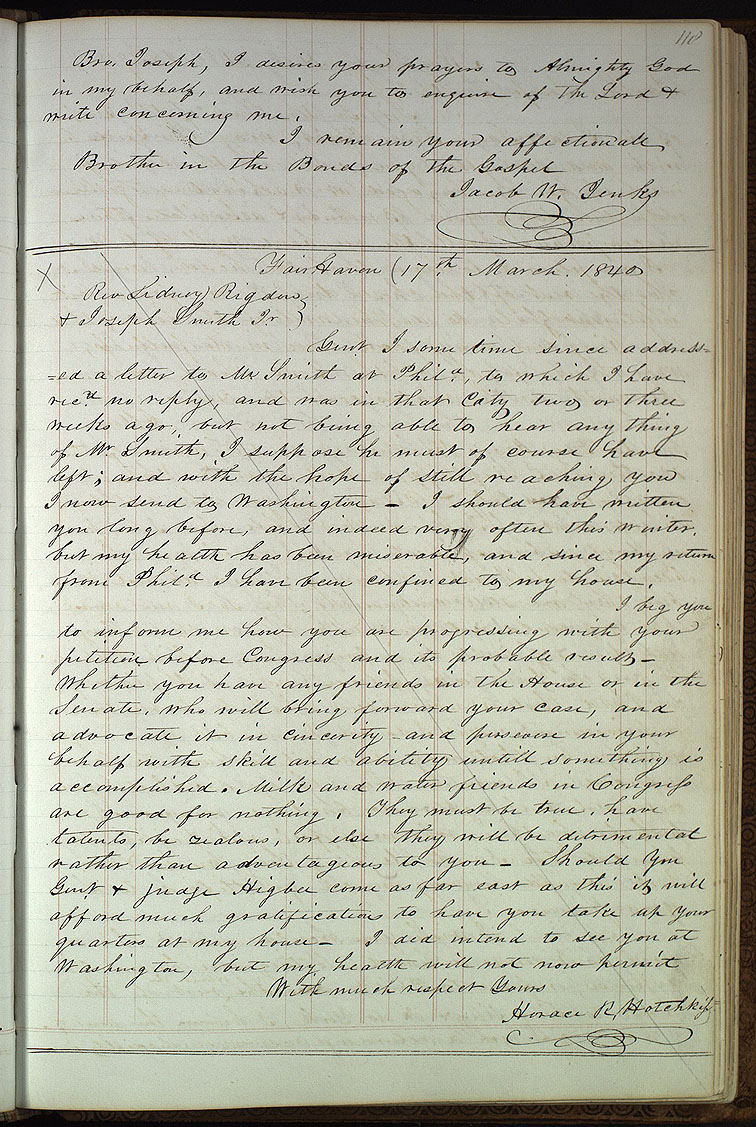 118
Bro. Joseph, I desires your prayers to Almighty God
in my behalf, and wish you to enquire of the Lord &
write concerning me.
I remain your affectionate
Brother in the Bonds of the Gospel
Jacob W. Jenks
X Fair Haven (17th March. 1840
Rev Sidney Rigdon }
& Joseph Smith Jr }
Gent I some time since address-
=ed a letter to Mr Smith at Phila, to which I have
recd no reply, and was in that City two or three
weeks ago, but not being able to hear any thing
of Mr Smith, I suppose he must of course have
left; and with the hope of still reaching you
I now send to Washington – I should have written
you long before, and indeed very often this winter,
but my health has been miserable, and since my return
from Phila I have been confined to my house.
I beg you
to inform me how you are progressing with your
petition before Congress and its probable result –
Whether you have any friends in the House or in the
Senate, who will bring forward your case, and
advocate it in cincerity – and persevere in your
behalf with skill and ability untill something is
accomplished. Milk and water friends in Congress
are good for nothing. They must be true, have
talents, be zealous, or else they will be detrimental
rather than adventageous to you – Should you
Gent & Judge Higbee come as far east as this it will
afford much gratification to have you take up your
quarters at my house – I did intend to see you at
Washington, but my health will not now permit
With much respect Yours
Horace R. Hotchkiss